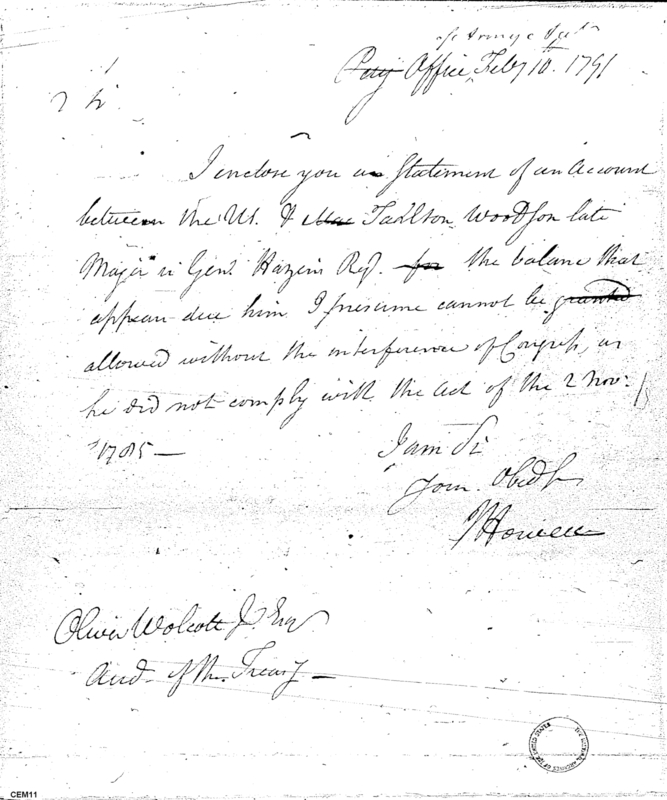 of Army Acts
Pay Office, Feby 10. 1791
Sir
I enclose you a Statement of an Account
between the US. & Mas Tarlton Woodson late
Major in Genl. Hazen's Regt. for the balance that
appear due him I presume cannot be granted
allowed without the interference of Congress, as
he did not comply with the act of the 2 Nov:
1785 —
I am Sir
Your Obedt
JHowell
Oliver Wolcott Jr. Esq
Aud. of the Treasy —
CEM11